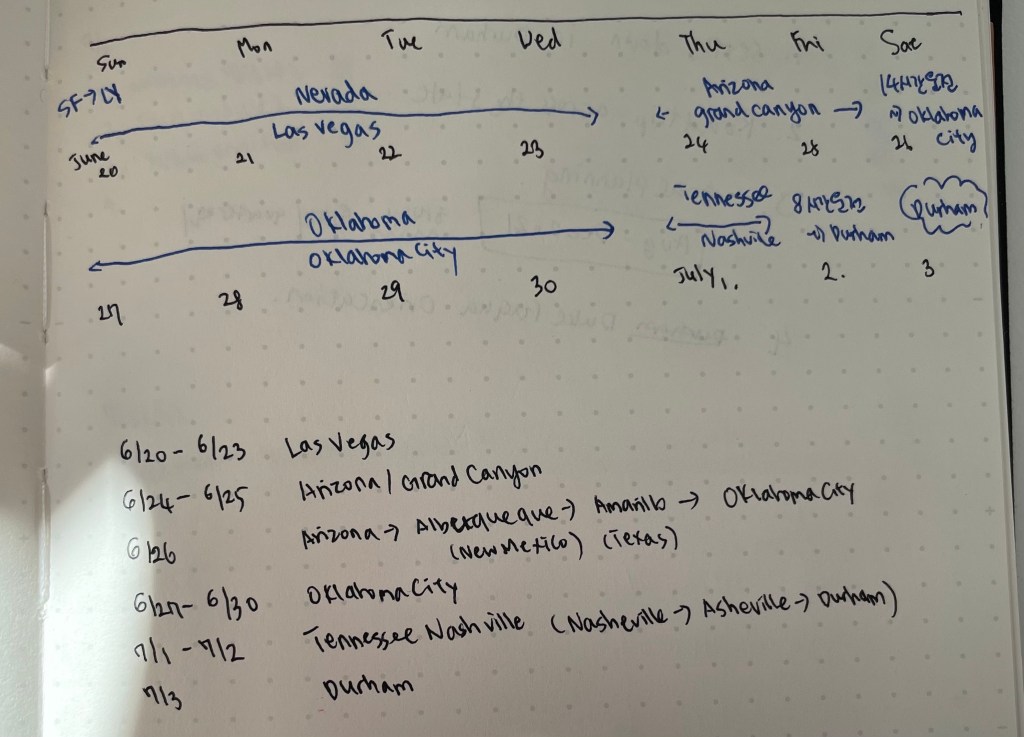 Sun Mon Tue Wed Thu Fri Sat
SF→LV Nevada Arizona 14시간운전
Las Vegas ← grand canyon → ⇒ Oklahoma City
June 20 21 22 23 24 25 26
Oklahoma Tennessee 8시간운전 Durham
Oklahoma City Nashville ⇒ Durham
27 28 29 30 July 1. 2. 3
6/20 - 6/23 Las Vegas
6/24 - 6/25 Arizona / Grand Canyon
6/26 Arizona → Alberqueque → Amarillo → Oklahoma City
(New Mexico) (Texas)
6/27 - 6/30 Oklahoma City
7/1 - 7/2 Tennessee Nashville (Nasheville → Asheville → Durham)
7/3 Durham